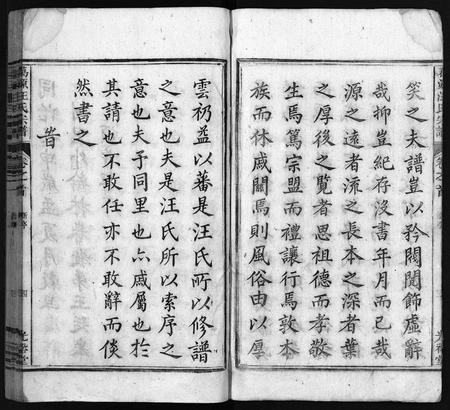 笑之夫譜豈以矜閥閱飾虛辭
哉抑豈紀存沒書年月而已哉
源之遠者流之長本之深者葉
之厚後之覧者思祖德而孝敬
生焉篤宗盟而禮讓行焉敦本
族而休戚關焉則風俗由以厚
雲礽益以蕃是汪氏所以修譜
之意也夫是汪氏所以索序之
意也夫予同里也亦戚屬也於
其請也不敢任亦不敢辭而倓
然書之
旹
汪氏宗譜
卷之首
四
光裕堂